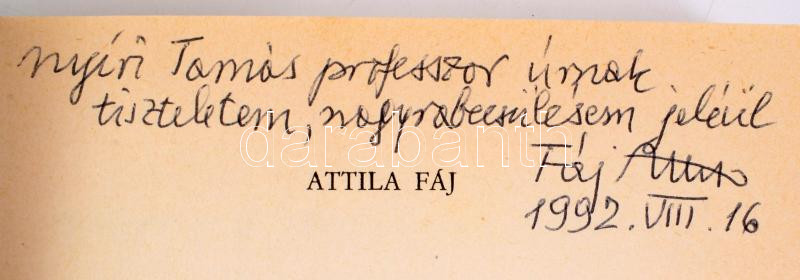 Nyíri Tamás professzor úrnak
tiszteletem, nagyrabecsülésem jeléül
darabanth
Fáj Attila
ATTILA FÁJ
1992. VIII. 16